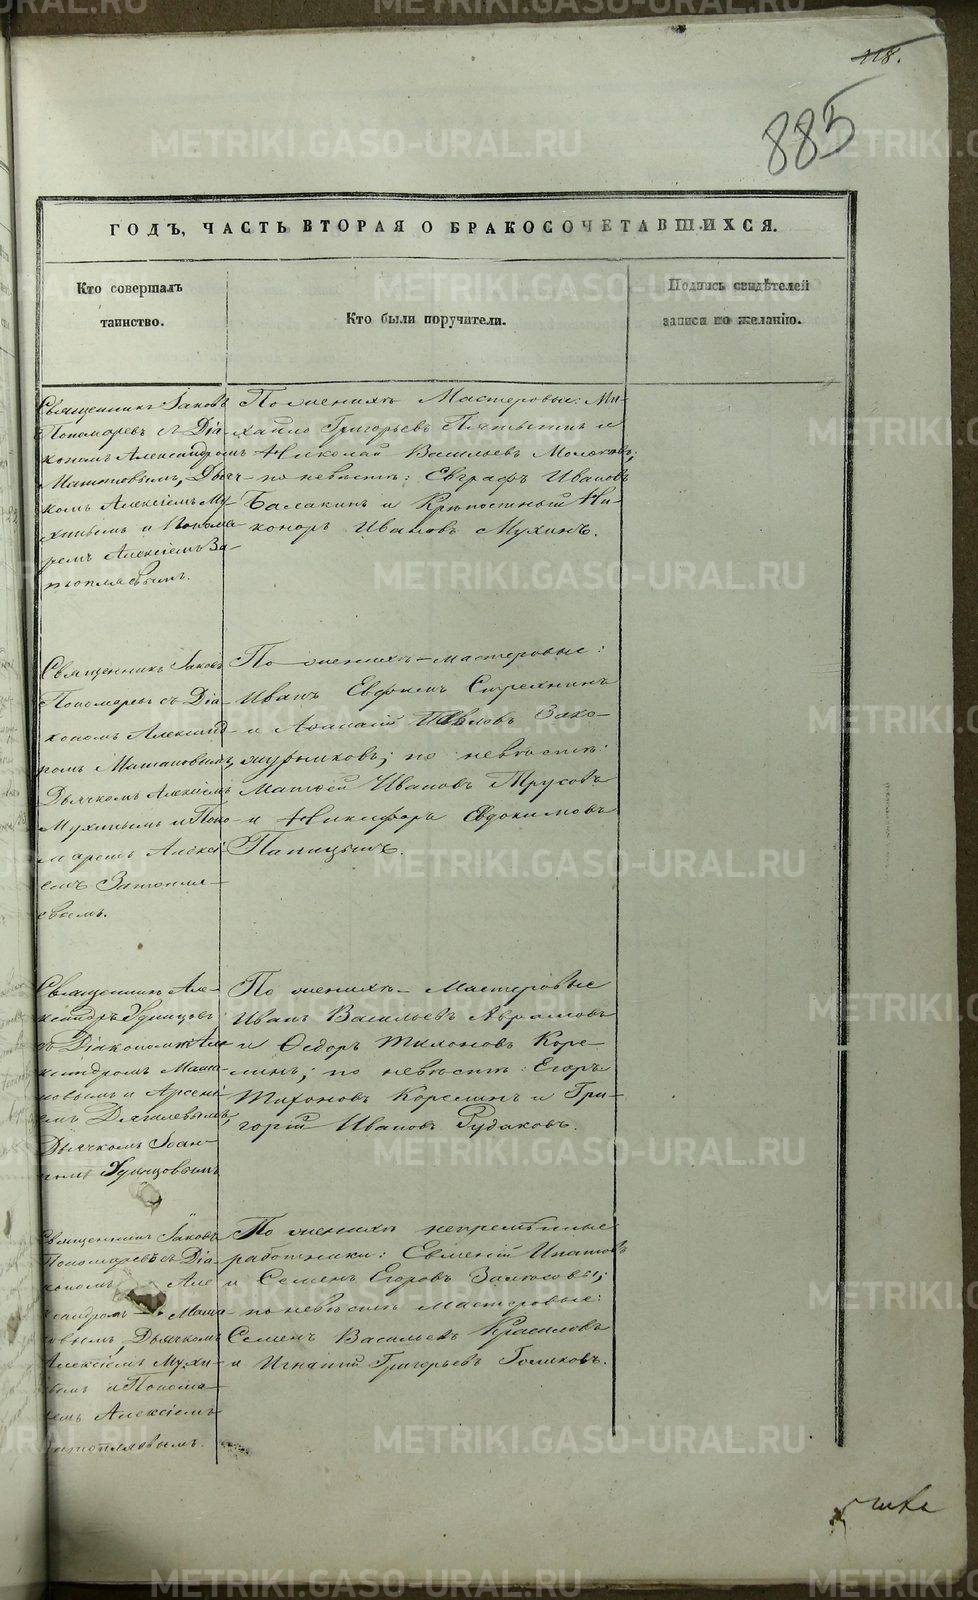 118.
885
ГОДЪ, ЧАСТЬ ВТОРАЯ О БРАКОСОЧЕТАВШИХСЯ.
Кто совершалъ
таинство.
Кто были поручители.
Подпись свидѣтелей
записи по желанію.
Священникъ Іаковъ
Пономаревъ съ Діа-
кономъ Александромъ
Дьяч-
комъ Алексіемъ Му-
хинымъ и Понома-
ремъ Алексіемъ За-
топляевымъ.
По женихѣ Мастеровые: Ми-
хайло Григорьевъ и
Николай Васильевъ
по невѣстѣ: Евграфъ Ивановъ
Балакинъ и Крѣпостный Ни-
каноръ Ивановъ Мухинъ.
Священникъ Іаковъ
Пономаревъ съ Діа-
кономъ Александ-
ромъ
Дьячкомъ Алексіемъ
Мухинымъ и Поно-
маремъ Алексі-
емъ Затопля-
евымъ.
По женихѣ мастеровые:
Иванъ Евфимъ
и Павловъ
по невѣстѣ:
Матѳей Ивановъ Трусовъ
и Никифоръ Евдокимовъ
Священникъ Але-
ксандръ Удинцовъ
съ Діакономъ Але-
ксандромъ
и Арсені-
емъ Дягилевымъ,
Дьячкомъ Іоан-
номъ Удинцовымъ
По женихѣ Мастеровые
Иванъ Васильевъ Аврамовъ
и Ѳедоръ Тихоновъ Коре-
линъ; по невѣстѣ: Егоръ
Тихоновъ Корелинъ и Гри-
горій Ивановъ Рудаковъ.
Священникъ Іаковъ
Пономаревъ съ Діа-
кономъ Але-
ксандромъ
Дьячкомъ
Алексіемъ Мухи-
нымъ и Понома-
ремъ Алексіемъ
Затопляевымъ.
По женихѣ непремѣнные
работники: Евгеній Ипатовъ
и Семенъ Егоровъ
по невѣстѣ мастеровые:
Семенъ Васильевъ Красиловъ
и Игнатій Григорьевъ Голиковъ.
METRIKI.GASO-URAL.RU